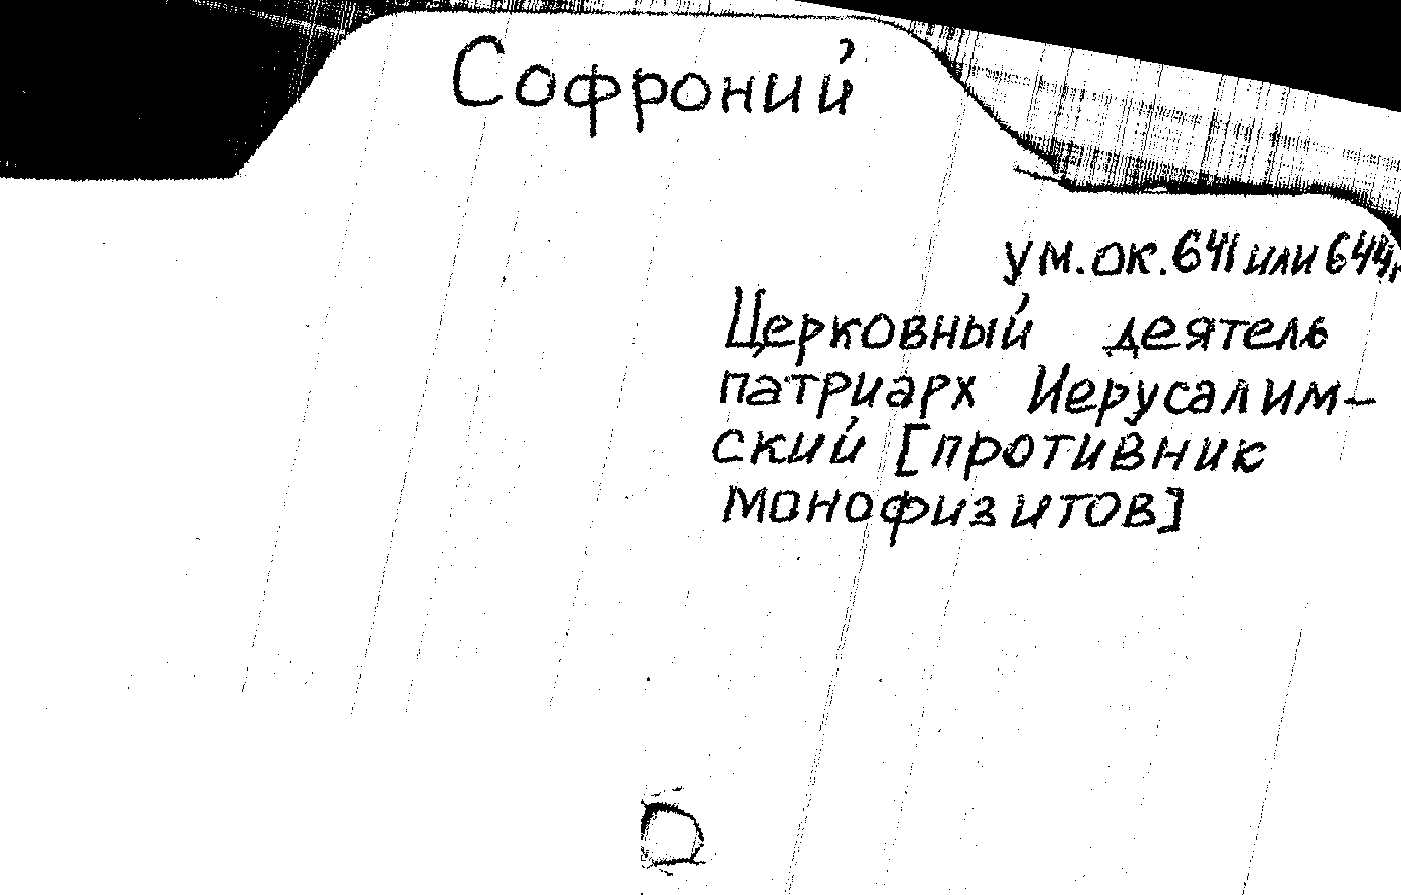 Софроний
ум. ок. 641 или 644г.
Церковный деятель
патриарх Иерусалим-
ский [противник
монофизитов]